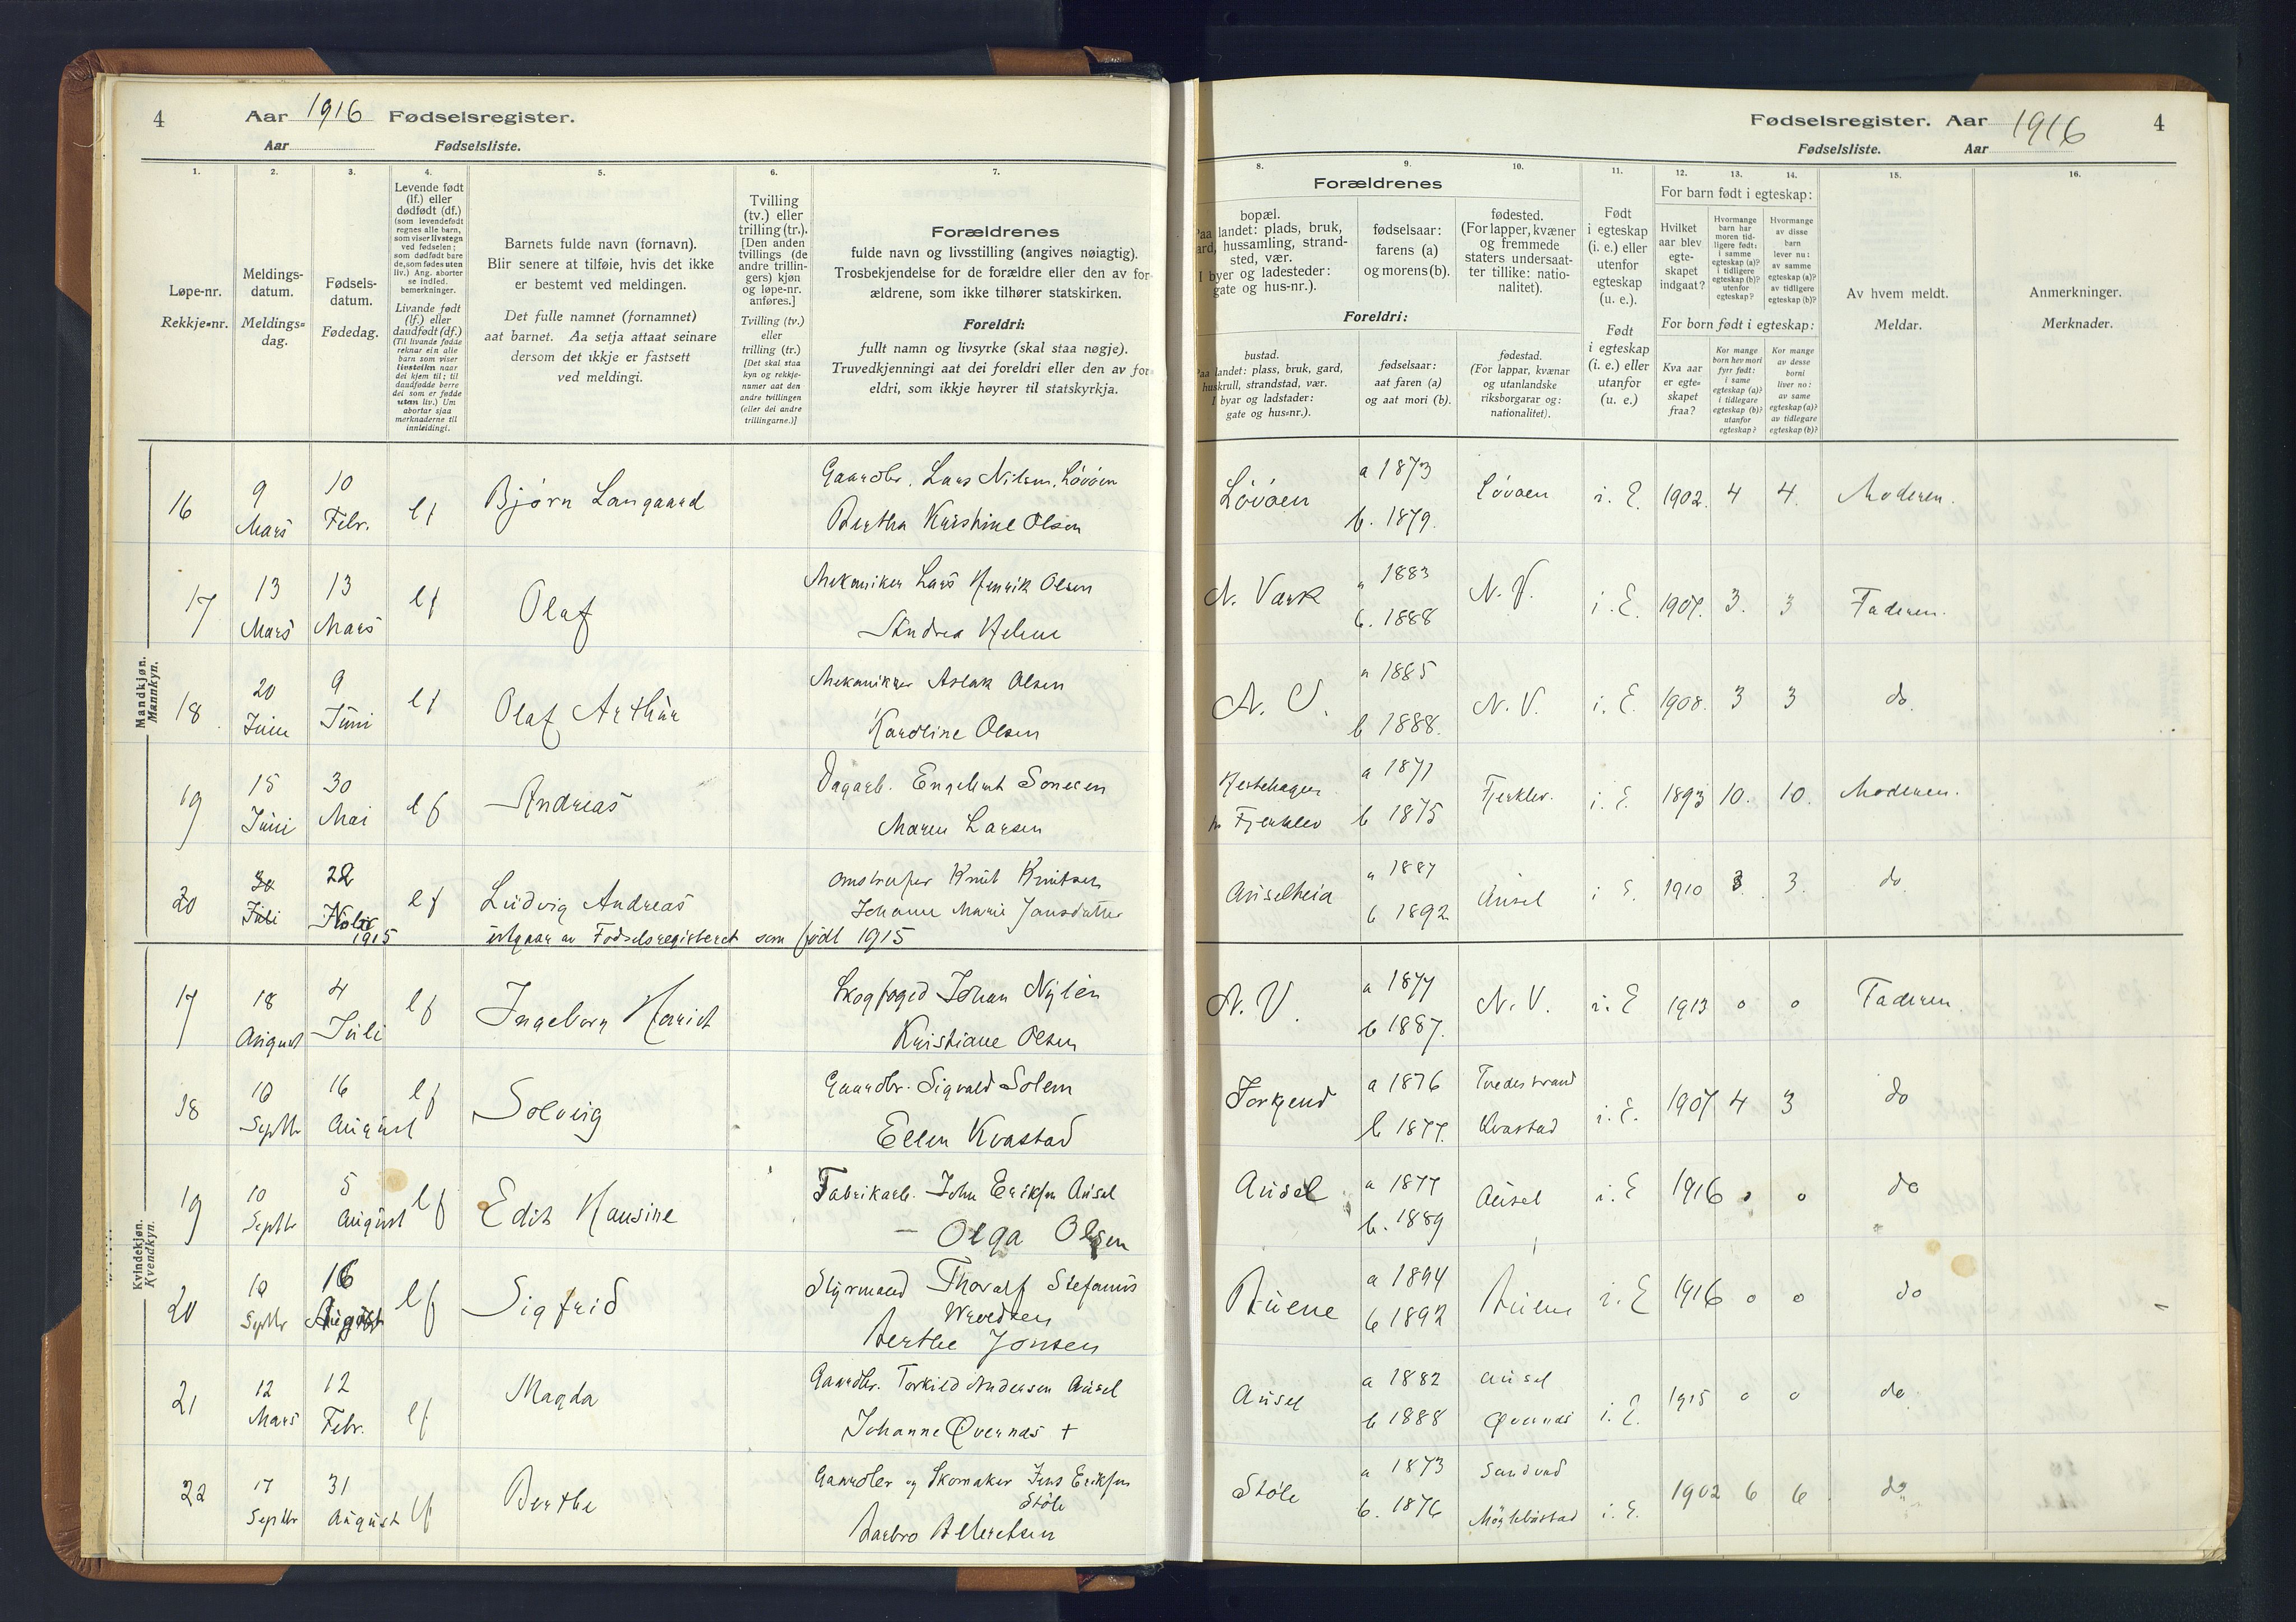 4
Aar 1916 Fødselsregister.
Aar Fødselsliste.
Fødselsregister. Aar 1916
4
Fødselsliste. Aar
1.
Løpe-nr.
Rekkje=nr.
2.
Meldings-
datum.
Meldings=
dag.
3.
Fødsels-
datum.
Fødedag.
4.
Levende født
(lf.) eller
dødfødt (df.)
(som levendefødt
regnes alle barn,
som viser livstegn
ved fødselen;
som dødfødt bare
de, som fødes uten
liv.) Ang. aborter
se indled.
bemerkninger.
Livande født
(lf.) eller
daudfødt (df.)
(Til livande fødde
reknar ein alle
barn som viser
livsteikn naar
dei kjem til; til
daudfødde berre
dei som er fødde
utan liv.) Um
abortar sjaa
merknaderne til
innleidingi.
5.
Barnets fulde navn (fornavn).
Blir senere at tilføie, hvis det ikke
er bestemt ved meldingen.
Det fulle namnet (fornamnet)
aat barnet. Aa setja attaat seinare
dersom det ikkje er fastsett
ved meldingi.
6.
Tvilling
(tv.) eller
trilling (tr.).
[Den anden
tvillings (de
andre trillin-
gers) kjøn
og løpe-nr.
anføres.]
Tvilling (tv.)
eller
trilling (tr.)
[Det skal staa
kyn og rekkje-
numer aat den
andre tvillingen
(eller dei andre
trillingarne.)]
7.
Forældrenes
fulde navn og livsstilling (angives nøiagtig).
Trosbekjendelse for de forældre eller den av for-
ældrene, som ikke tilhører statskirken.
Foreldri:
fullt namn og livsyrke (skal staa nøgje).
Truvedkjenningi aat dei foreldri eller den av for-
eldri, som ikkje høyrer til statskyrkja.
8.
Forældrenes
bopæl.
landet: plads, bruk,
hussamling, strand-
sted, vær.
I byer og ladesteder:
gate og hus-nr.).
Foreldri:
bustad.
landet: plass, bruk, gard,
huskrull, strandstad, vær.
I byar og ladstader:
gate og hus=nr.).
9.
fødselsaar:
farens (a)
og morens (b).
fødselsaar:
aat faren (a)
og aat mori (b).
10.
fødested.
(For lapper, kvæner
og fremmede
staters undersaat-
ter tillike: natio-
nalitet).
fødestad.
(For lappar, kvænar
og utanlandske
riksborgarar og:
nationalitet).
11.
Født
i egteskap
(i. e.) eller
utenfor
egteskap
(u. e.).
Født
i egteskap
(i. e.) eller
utanfor
(u. e.)
12.
For barn født i egteskap:
Hvilket
aar blev
egte-
skapet
indgaat?
For born født i egteskap:
Kva aar
er egte=
skapet
fraa?
13.
Hvormange
barn har
moren tid-
ligere født:
i samme
egteskap (a)?
i tidligere
egteskap (b)?
utenfor
egteskap?
Kor mange
born hev mori
fyrr født:
i same
egteskap (a)?
i tidlegare
egteskap (b)?
utanfor
egteskap?
14.
Hvormange
av disse
barn
lever nu:
av samme
egteskap (a)?
av tidligere
egteskap (b)?
Kor mange
av desse
borni
liver no:
av same
egteskap (a)?
av tidlegare
egteskap (b)?
15.
Av hvem meldt.
Meldar.
16.
Anmerkninger.
Merknader.
Mandkjøn.
Mannkyn.
16 9 Mars 10 Febr. lf Bjørn Langaard
Gaardbr. Lars Nilsen, Løvøen
Bertha Kristine Olsen
Løvøen a 1873 b. 1879. Løvøen i. E. 1902. 4 4. Moderen.
17 13 Mars 13 Mars lf Olaf
Mekaniker Lars Henrik Olsen
Andrea Helene
N. Værk a 1883 b. 1888 N. V. i. E. 1907. 3. 3 Faderen.
18 20 Juni 9 Juni lf Olaf Arthur
Mekaniker Aslak Olsen
Karoline Olsen
N. V. a 1885 b 1888. N. V. i. E. 1908. 3 3 do.
19 15 Juni 30 Mai lf Andreas
Dagarb. Engelbret Sørensen
Maren Larsen
Hestehagen Fjerklev a 1871 b 1875 Fjerklev. i. E. 1893 10. 10. Moderen.
20 Juli 22 1915 lf Ludvig Andreas
Knut Knutsen
Johanne Marie Jansdatter
utgaar av Fødselsregisteret som født 1915
Auselheia a 1887 b 1892 Ausel i E. 1910 3. 3. do.
Kvindekjøn.
Kvendkyn.
17 18 August 4 Juli lf Ingeborg Harriet
Skogfoged Johan Nylén
Kristiane Olsen
N. V. a 1877 b 1887. N. V. i. E 1913 0 0 Faderen.
18 10 Septbr 16 August lf Solveig
Gaardbr. Sigvald Solem
Ellen Kvastad
a 1876 b 1877. Tvedestrand Kvastad i. E. 1907 4 3 do
19 10 Septbr 5 August lf Edit Hansine
Fabrikarb. John Eriksen Ausel
— Olga Olsen
Ausel a 1877 b. 1889 Ausel i. E 1916 0 0 do
20 10 Septbr 16 August lf Sigfrid
Styrmand Thoralf Stefanus
Wroldsen
Berthe Jonsen
Buene a 1894 b 1892 Buene i. E 1916 0 0 do
21 12 Mars 12 Febr. lf Magda
Gaardbr. Torkild Andersen Ausel
Johanne Øvernæs +
Ausel a 1882 b 1888 Ausel Øvernæs i. E. 1915 0 0 do.
22 17 Septbr 31 August lf Berthe
Gaardbr og Skomaker Jens Eriksen
Støle
Barbro Alleretsen
Støle a 1873 b. 1876 Sandved i. E. 1902 6 6 do